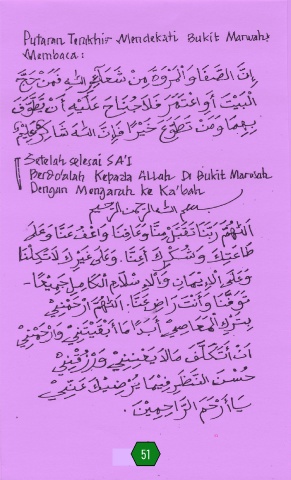 Putaran Terakhir Mendekati Bukit Marwah,
Membaca:
إِنَّ الصَّفَا وَالْمَرْوَةَ مِنْ شَعَآئِرِ اللهِ فَمَنْ حَجَّ
الْبَيْتَ أَوِ اعْتَمَرَ فَلَا جُنَاحَ عَلَيْهِ أَنْ يَطَّوَّفَ
بِهِمَا وَمَنْ تَطَوَّعَ خَيْرًا فَإِنَّ اللهَ شَاكِرٌ عَلِيْمٌ
Setelah selesai SA'I
Berdo'alah Kepada ALLah Di Bukit Marwah
Dengan Mengarah ke Ka'bah
بسم الله الرحمن الرحيم
اَللّٰهُمَّ رَبَّنَا تَقَبَّلْ مِنَّا وَعَافِنَا وَاعْفُ عَنَّا وَعَلَى
طَاعَتِكَ وَشُكْرِكَ أَعِنَّا. وَعَلَى غَيْرِكَ لَا تَكِلْنَا
وَعَلَى الْإِيْمَانِ وَالْإِسْلَامِ الْكَامِلِ جَمِيْعًا -
تَوَفَّنَا وَأَنْتَ رَاضٍ عَنَّا. اَللّٰهُمَّ ارْحَمْنِيْ
بِتَرْكِ الْمَعَاصِيْ أَبَدًا مَا أَبْقَيْتَنِيْ وَارْحَمْنِيْ
اَنْ أَتَكَلَّفَ مَا لَا يَعْنِيْنِيْ وَرْزُقْنِيْ
حُسْنَ النَّظَرِ فِيْمَا يُرْضِيْكَ عَنِّيْ
يَا أَرْحَمَ الرَّاحِمِيْنَ.
51